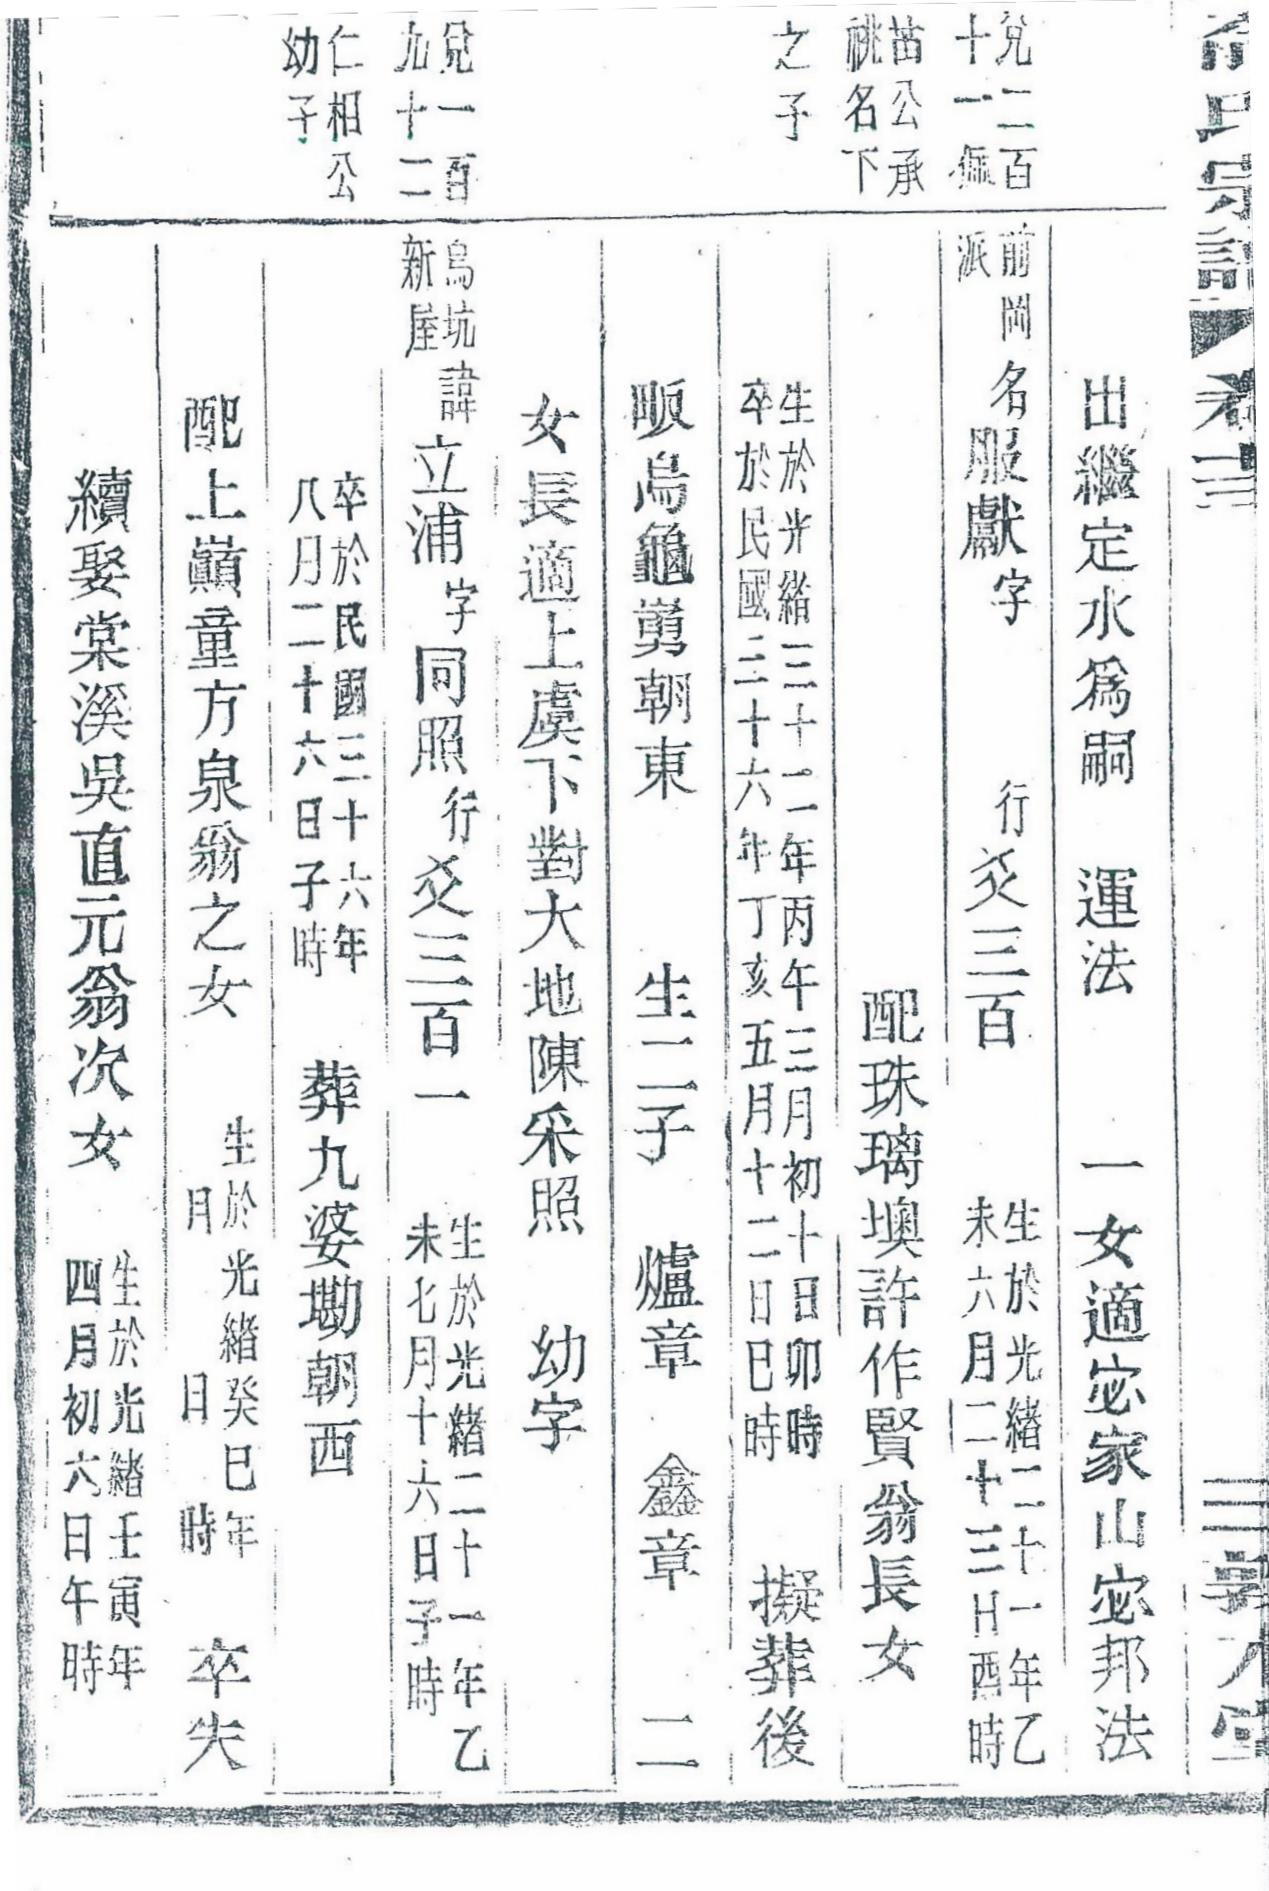 氏宗譜 卷三
出繼定水爲嗣 運法 一女適宓家山宓邦法
兌二百
十一佩
前岡
派
名服獻字 行爻三百
生於光緒二十一年乙
未六月二十三日酉時
苗公承
祧名下
配珠璃墺許作賢翁長女
之子
生於光緒三十二年丙午三月初十日卯時
卒於民國三十六年丁亥五月十二日巳時
擬葬後
畈烏龜嶴朝東 生二子 爐章 鑫章 二
女長適上虞下對大地陳采照 幼字
兌一百
九十二
烏坑
新屋
諱立浦字同照行爻三百一
生於光緒二十一年乙
未七月十六日子時
仁相公
幼子
卒於民國三十六年
八月二十六日子時
葬九婆墈朝西
配上巔童方泉翁之女
生於光緒癸巳年
月 日 時
卒失
續娶棠溪吳直元翁次女
生於光緒壬寅年
四月初六日午時